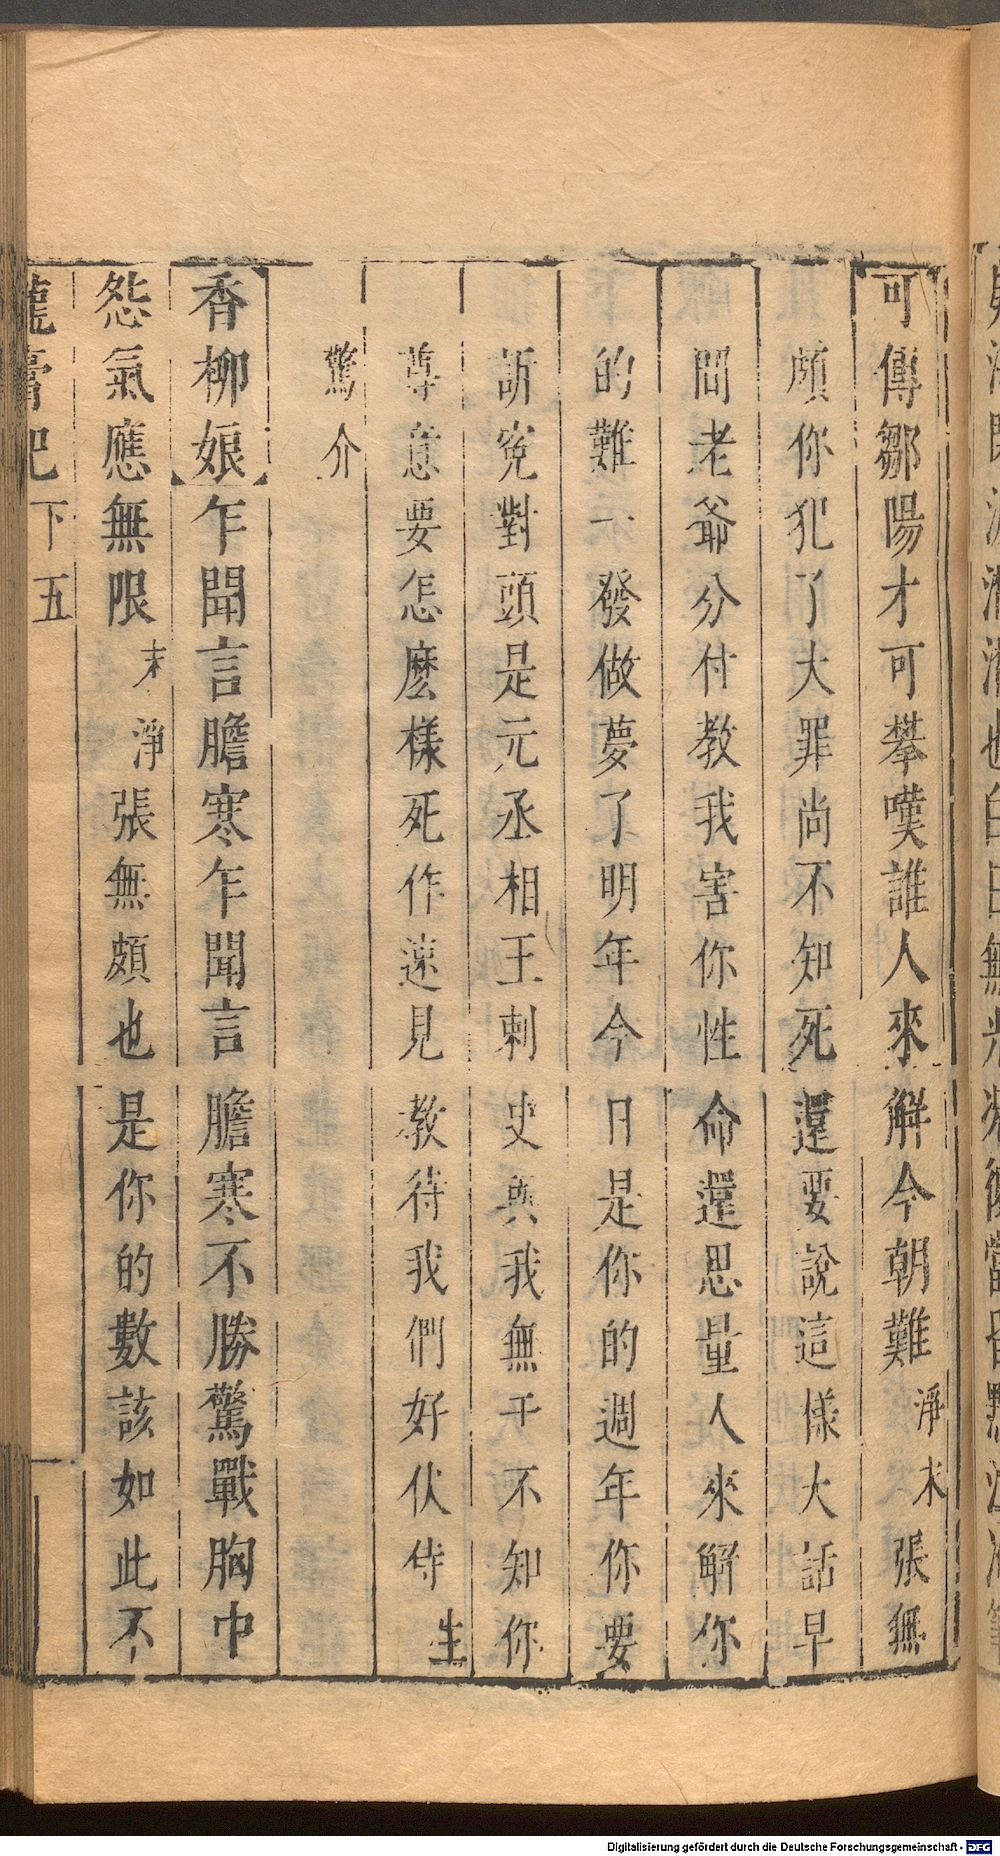 可傳鄒陽才可攀嘆誰人來解今朝難淨末張無
頗你犯了大罪尚不知死還要說這樣大話早
間老爺分付教我害你性命還思量人來解你
的難一發做夢了明年今日是你的週年你要
訴冤對頭是元丞相王剌史與我無干不知你
尊意要怎麼樣死作速見教待我們好伏侍生
驚介
香柳娘乍聞言膽寒乍聞言膽寒不勝驚戰胸中
怨氣應無限末淨張無頗也是你的數該如此不
龍膏記 下 五
Digitalisierung gefördert durch die Deutsche Forschungsgemeinschaft - DFG